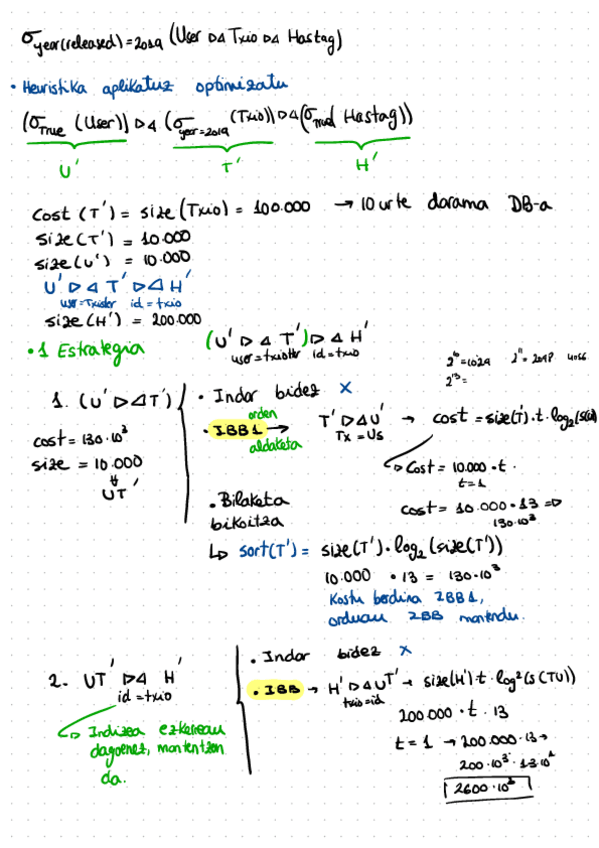 σ year(released)=2019 (User ⋈ Txio ⋈ Hastag)
• Heuristika aplikatuz optimizatu
(σ True (User)) ⋈ (σ year=2019 (Txio)) ⋈ (σ Hastag))
U' T' H'
cost (T') = size (Txio) = 100.000 → 10 urte darama DB-a
size (T') = 10.000
size (U') = 10.000
U' ⋈ T' ⋈ H'
id = txio
size (H') = 200.000
• 1 Estrategia (U' ⋈ T') ⋈ H'
id = txio
2^10 = 1024 2^11 = 2048 4096
2^13 =
1. (U' ⋈ T')
cost = 130·10^3
size = 10.000
⇓
UT'
• Indar bidez X
• IBB1 → orden aldaketa T' ⋈ U' → cost = size(T')·t·log2(s(U))
Tx = Us
↳ Cost = 10.000·t·
t=1
cost = 10.000·13 ⇒
130·10^3
• Bilaketa
bikoitza
↳ sort(T') = size(T')·log2(size(T'))
10.000 · 13 = 130·10^3
Kostu berdina IBB1,
orduan IBB mantendu.
2. UT' ⋈ H'
id = txio
↳ Indizea ezkerrean
dagoenez, mantentzen
da.
• Indar bidez X
• IBB → H' ⋈ UT' → size(H')·t·log2(s(TU))
txio=id
200.000 · t · 13
t = 1 → 200.000·13 →
200·10^3·13·10^2
2600·10^3